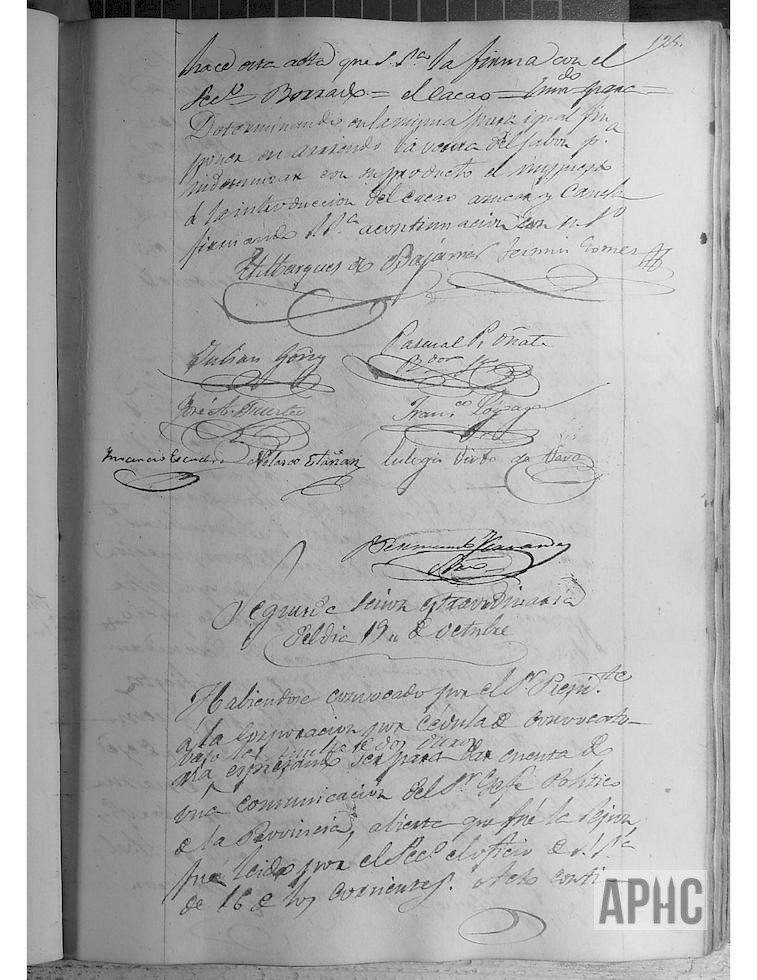 125.
hace esta acta que S. Sª la firma con el
Secº = Borrado = el Cacao =
Determinando en la misma para igual fin
poner en arriendo la venta del Jabon pª
indemnizar con su producto el impuesto
á la introduccion del Cacao azucar y Canela
firmando S. Sª a continuacion con
El Marques de Bajamar Fermin Gomez
Julian Goñy Pascual P. Oñate
José A. Fuertes Franco López
Escudero Estañan Eulogio de Vera
Segunda Sesion extraordinaria
del dia 19 de octubre
Habiendose convocado por el Sr Presidte
á la Corporacion por Cedula de convocato-
bajo la multa de dos duros
ria espresando ser para dar cuenta de
una comunicacion del Sr Gefe Politico
de la Provincia, abierta que fué la Sesion
fué leido por el Secº el oficio de S. Sª
de 16 de los corrientes. Acto conti-
APHC